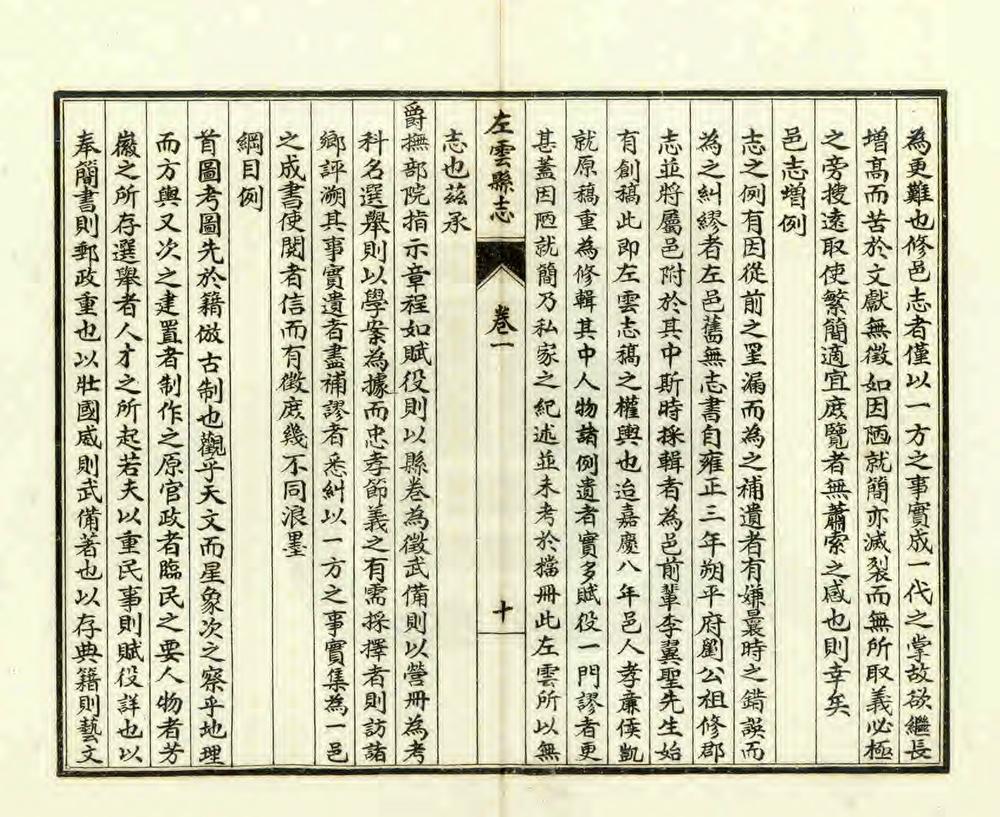 為更難也修邑志者僅以一方之事實成一代之掌故欲繼長
增高而苦於文獻無徵如因陋就簡亦滅裂而無所取義必極
之旁搜遠取使繁簡適宜庶覽者無蕭索之感也則幸矣
邑志增例
志之例有因從前之罣漏而為之補遺者有嫌曩時之錯誤而
為之糾繆者左邑舊無志書自雍正三年朔平府劉公祖修郡
志並將屬邑附於其中斯時採輯者為邑前輩李翼聖先生始
有創稿此即左雲志稿之權輿也迨嘉慶八年邑人孝廉侯凱
就原稿重為修輯其中人物諸例遺者實多賦役一門謬者更
甚蓋因陋就簡乃私家之紀述並未考於擋冊此左雲所以無
左雲縣志
卷一
十
志也茲承
爵撫部院指示章程如賦役則以縣卷為徵武備則以營冊為考
科名選舉則以學案為據而忠孝節義之有需採擇者則訪諸
鄉評溯其事實遺者盡補謬者悉糾以一方之事實集為一邑
之成書使閱者信而有徵庶幾不同浪墨
綱目例
首圖考圖先於籍倣古制也觀乎天文而星象次之察乎地理
而方輿又次之建置者制作之原官政者臨民之要人物者芳
徽之所存選舉者人才之所起若夫以重民事則賦役詳也以
奉簡書則郵政重也以壯國威則武備著也以存典籍則藝文